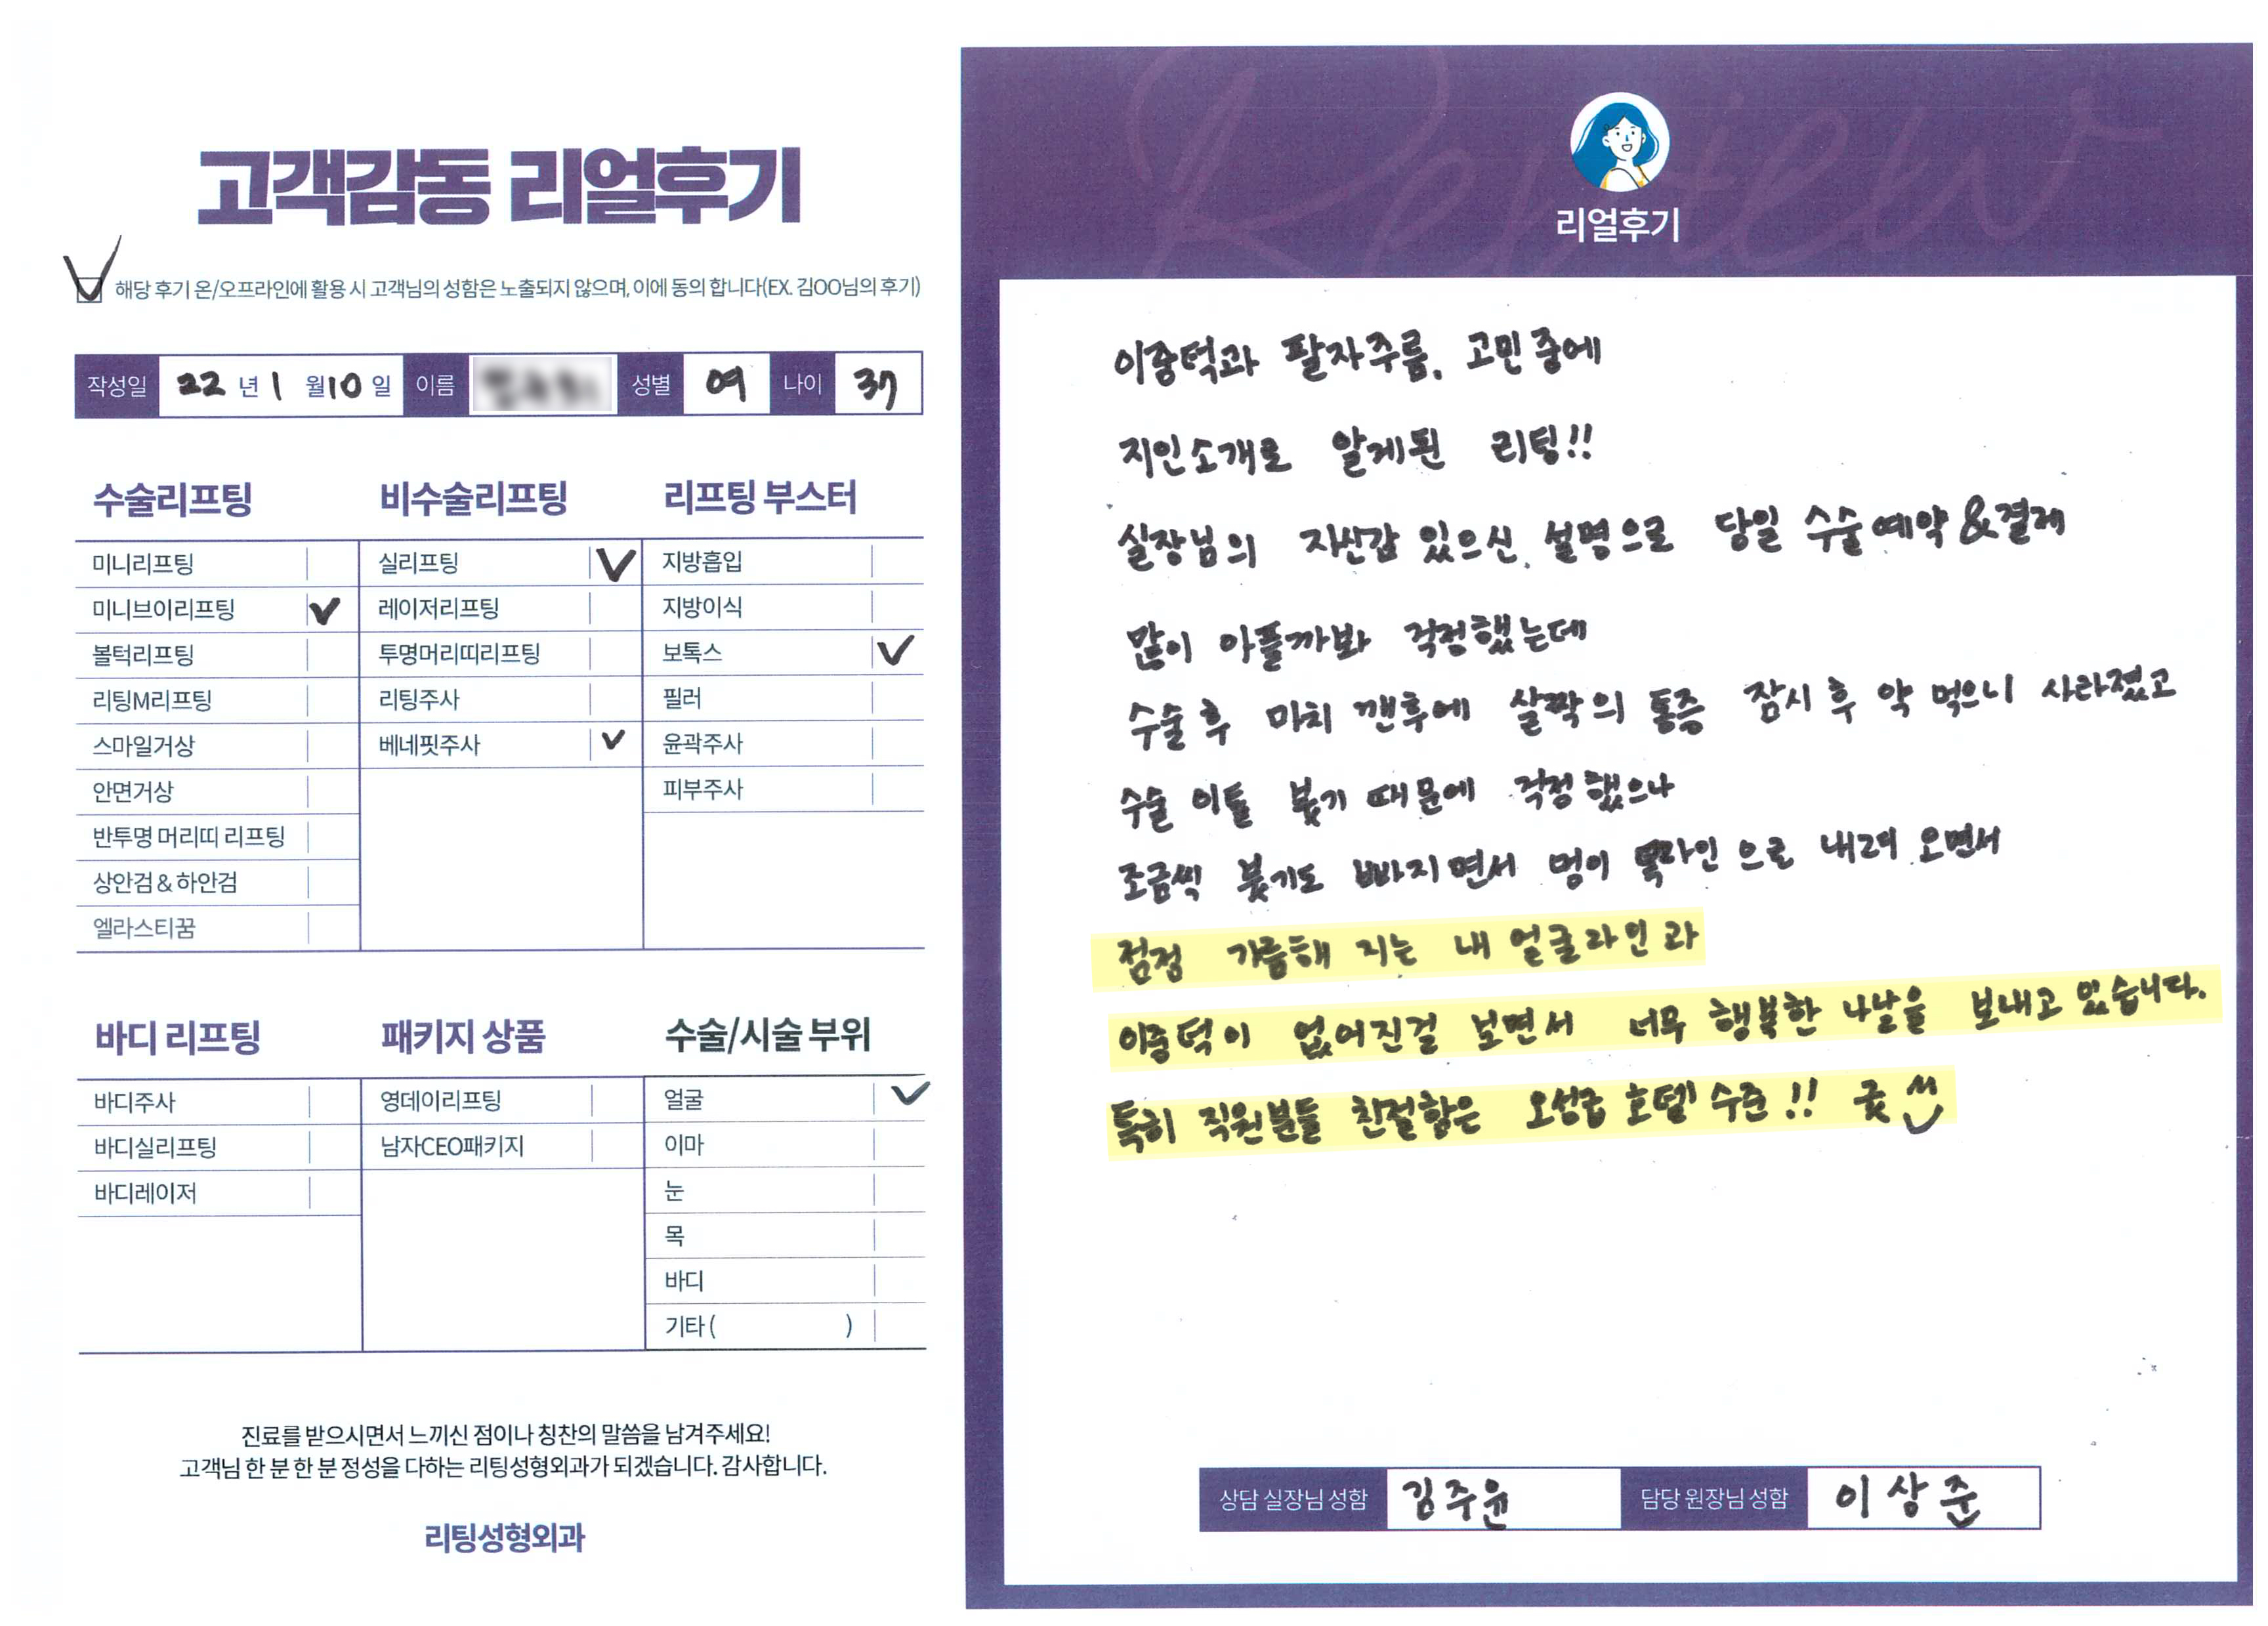 고객감동 리얼후기
해당 후기 온/오프라인에 활용 시 고객님의 성함은 노출되지 않으며, 이에 동의 합니다(EX. 김OO님의 후기)
작성일 22 년 1 월 10 일 이름 성별 여 나이 37
수술리프팅
미니리프팅
미니브이리프팅
볼턱리프팅
리팅M리프팅
스마일거상
안면거상
반투명 머리띠 리프팅
상안검 & 하안검
엘라스티꿈
비수술리프팅
실리프팅
레이저리프팅
투명머리띠리프팅
리팅주사
베네핏주사
리프팅 부스터
지방흡입
지방이식
보톡스
필러
윤곽주사
피부주사
바디 리프팅
바디주사
바디실리프팅
바디레이저
패키지 상품
영데이리프팅
남자CEO패키지
수술/시술 부위
얼굴
이마
눈
목
바디
기타 ( )
진료를 받으시면서 느끼신 점이나 칭찬의 말씀을 남겨주세요!
고객님 한 분 한 분 정성을 다하는 리팅성형외과가 되겠습니다. 감사합니다.
리팅성형외과
Review
리얼후기
이중턱과 팔자주름. 고민중에
지인소개로 알게된 리팅!!
실장님의 자신감 있으신 설명으로 당일 수술예약&결제
많이 아플까봐 걱정했는데
수술 후 마취 깬후에 살짝의 통증 잠시 후 약 먹으니 사라졌고
수술 이틀 붓기 때문에 걱정했으나
조금씩 붓기도 빠지면서 멍이 목라인으로 내려 오면서
점점 갸름해 지는 내 얼굴라인과
이중턱이 없어진걸 보면서 너무 행복한 나날을 보내고 있습니다.
특히 직원분들 친절함은 오성급 호텔 수준!! 굿
상담 실장님 성함 김주윤 담당 원장님 성함 이상준